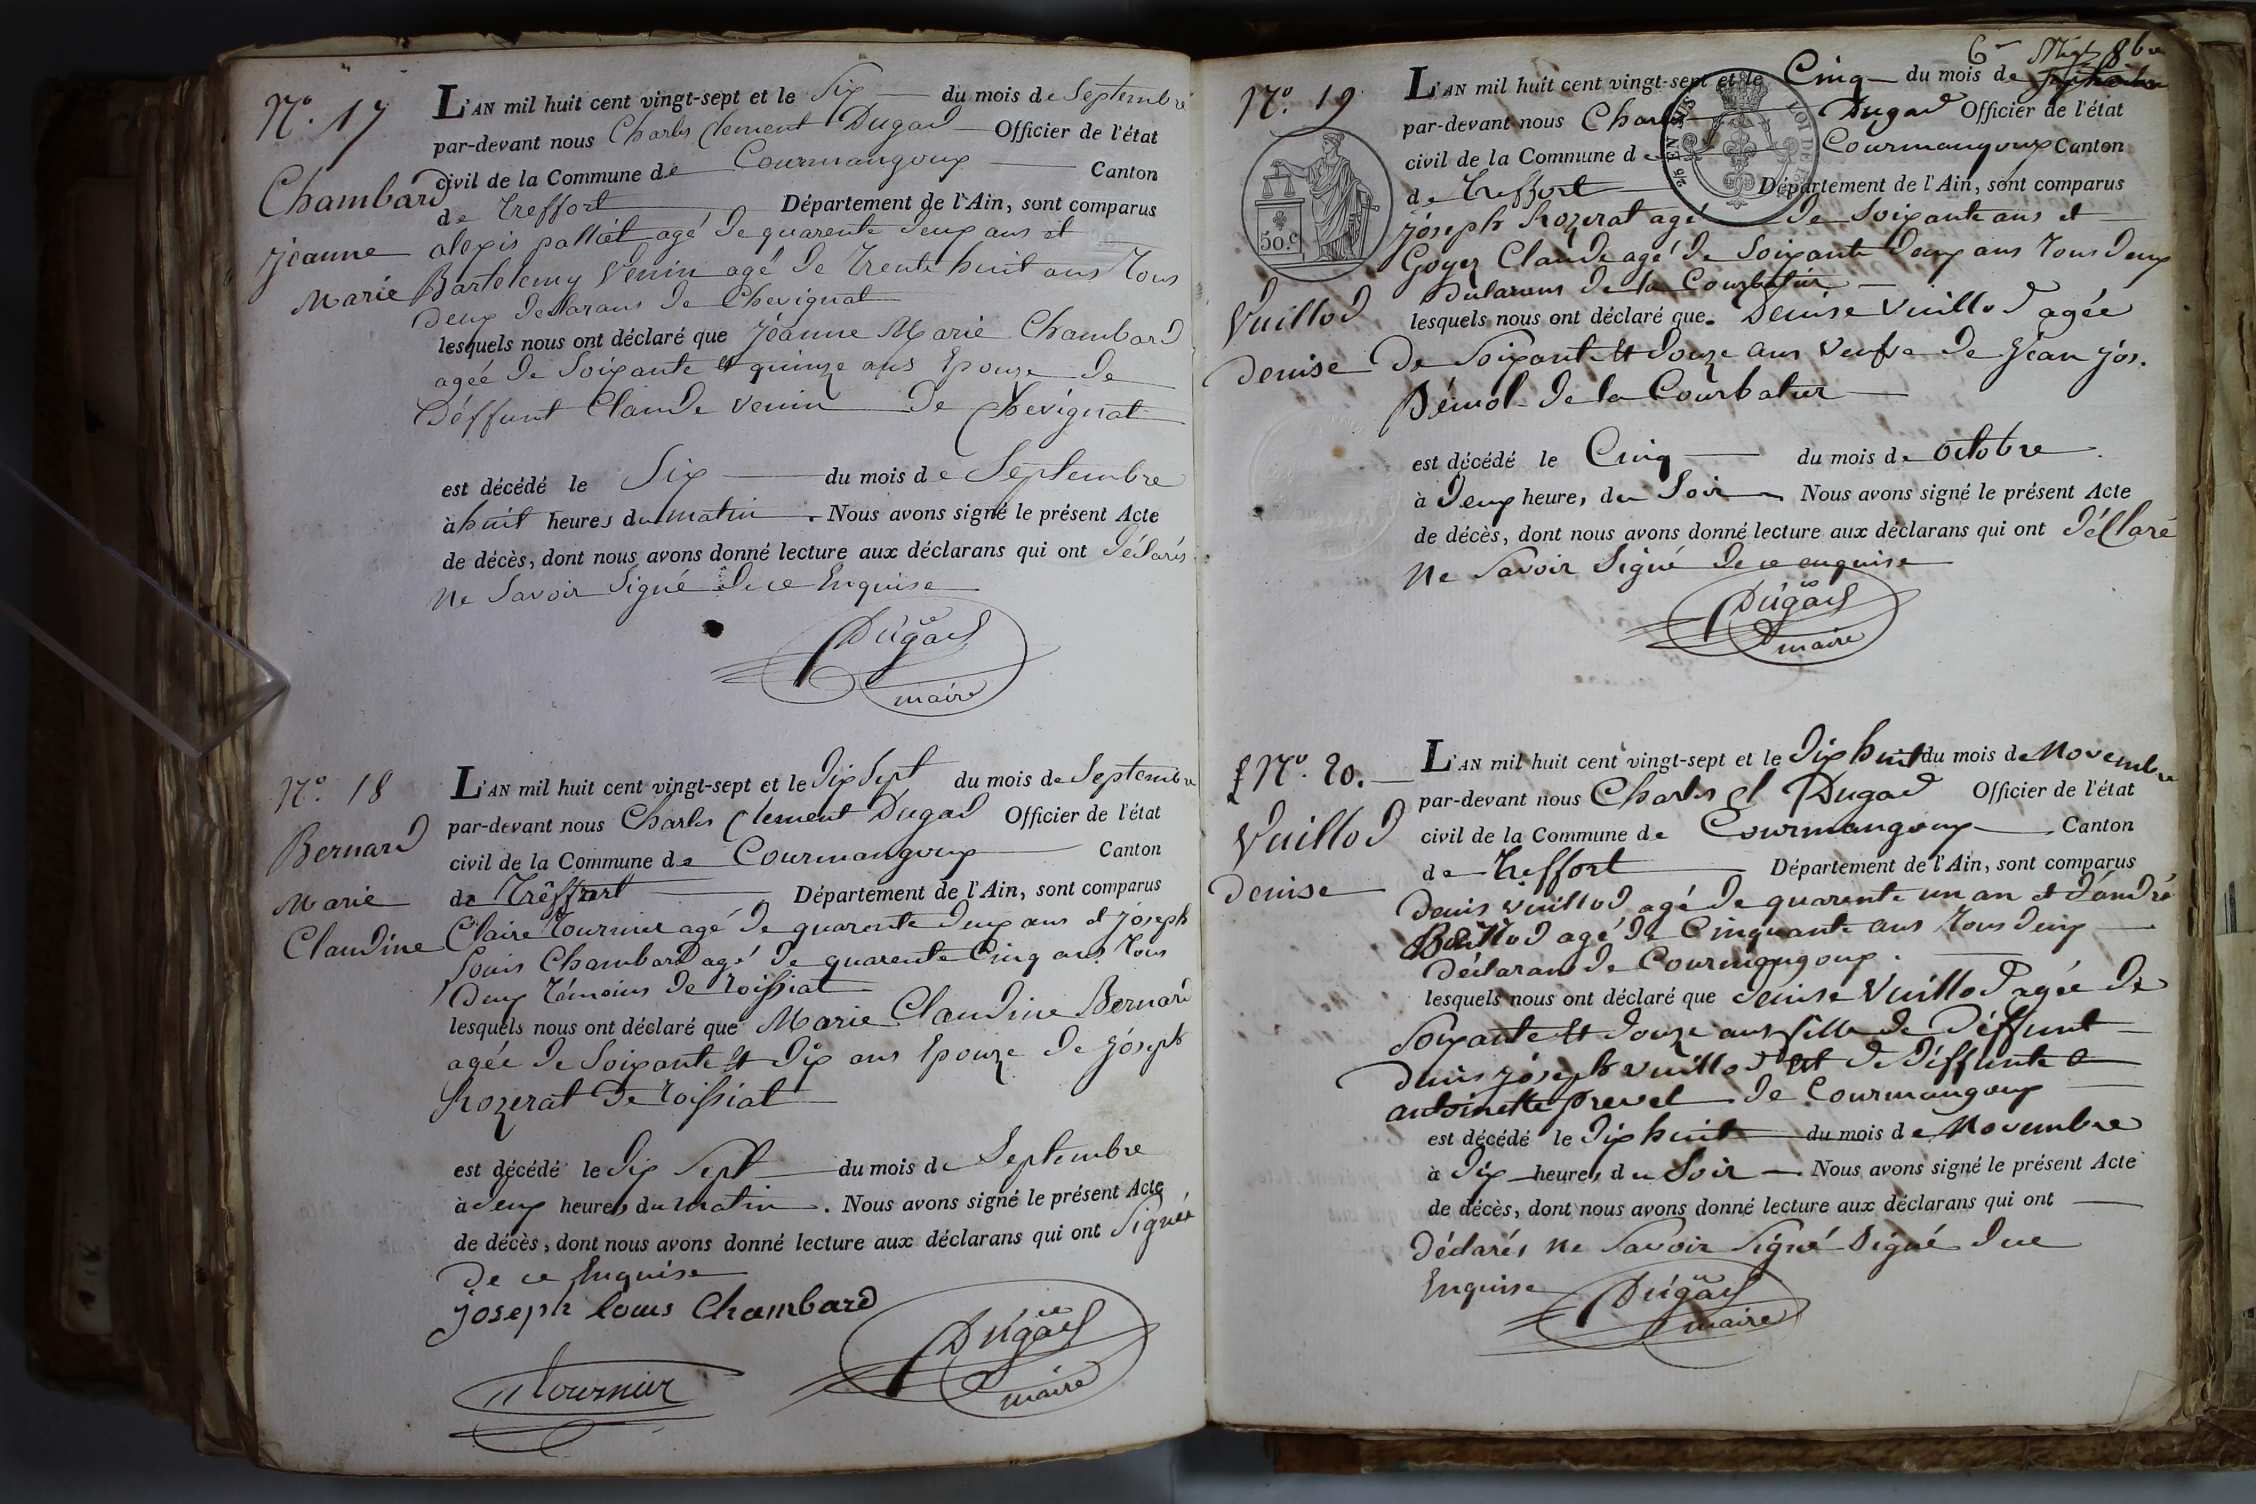 N.° 17
Chambard
jeanne
Marie
L'AN mil huit cent vingt-sept et le Six du mois de Septembre
par-devant nous Charles Clement Dugad Officier de l'état
civil de la Commune de Courmangoux Canton
de Treffort Département de l'Ain, sont comparus
alexis palliat agé de quarente deux ans et
Bartelemy Venin agé de trente huit ans tous
deux declarans de Chevignat
lesquels nous ont déclaré que jéanne Marie Chambard
agée de Soixante et quinze ans Epouze de
déffunt Claude venin de Chevignat
est décédé le Six du mois de Septembre
à huit heures du matin. Nous avons signé le présent Acte
de décès, dont nous avons donné lecture aux déclarans qui ont déclarés
ne Savoir Signé de ce Enquise
Dugad
maire
N.° 18
Bernard
Marie
Claudine
L'AN mil huit cent vingt-sept et le dix Sept du mois de Septembre
par-devant nous Charles Clement Dugad Officier de l'état
civil de la Commune de Courmangoux Canton
de Tréffort Département de l'Ain, sont comparus
Claire tournier agé de quarente deux ans et joseph
Louis Chambard agé de quarente Cinq ans tous
deux témoins de roissiat
lesquels nous ont déclaré que Marie Claudine Bernard
agée de Soixante et dix ans Epouze de jóseph
Rozerat de roissiat
est décédé le dix Sept du mois de Septembre
à deux heures du matin. Nous avons signé le présent Acte
de décès, dont nous avons donné lecture aux déclarans qui ont Signés
de ce Enquise
joseph louis Chambard
tournier
Dugad
maire
N.° 19
50.c
Vuillod
denise
8bre
L'AN mil huit cent vingt-sept et le Cinq du mois de
par-devant nous Charles Dugad Officier de l'état
civil de la Commune de Courmangoux Canton
de Treffort Département de l'Ain, sont comparus
jóseph Rozerat agé de Soixante ans et
Goyez Claude agé de Soixante deux ans tous deux
declarans de la Courbatur
lesquels nous ont déclaré que Denise Vuillod agée
de Soixante et douze ans veufve de jéan jós.
Pémol de la Courbatur
est décédé le Cinq du mois de octobre
à deux heures du Soir Nous avons signé le présent Acte
de décès, dont nous avons donné lecture aux déclarans qui ont déclaré
ne Savoir Signé de ce enquise
Dugad
maire
N.° 20.
Vuillod
denise
L'AN mil huit cent vingt-sept et le dix huit du mois de Novembre
par-devant nous Charles Cl Dugad Officier de l'état
civil de la Commune de Courmangoux Canton
de Treffort Département de l'Ain, sont comparus
denis vuillod agé de quarente un an et d'andré
agé de Cinquante ans tous deux
déclarans de Courmangoux.
lesquels nous ont déclaré que denise Vuillod agée de
Soixante et douze ans fille de déffunt
denis jóseph vuillod et de déffunte
antoinette prevel de Courmangoux
est décédé le dix huit du mois de Novembre
à dix heures du Soir Nous avons signé le présent Acte
de décès, dont nous avons donné lecture aux déclarans qui ont
déclarés ne Savoir Signé Signé de ce
Enquise
Dugad
maire